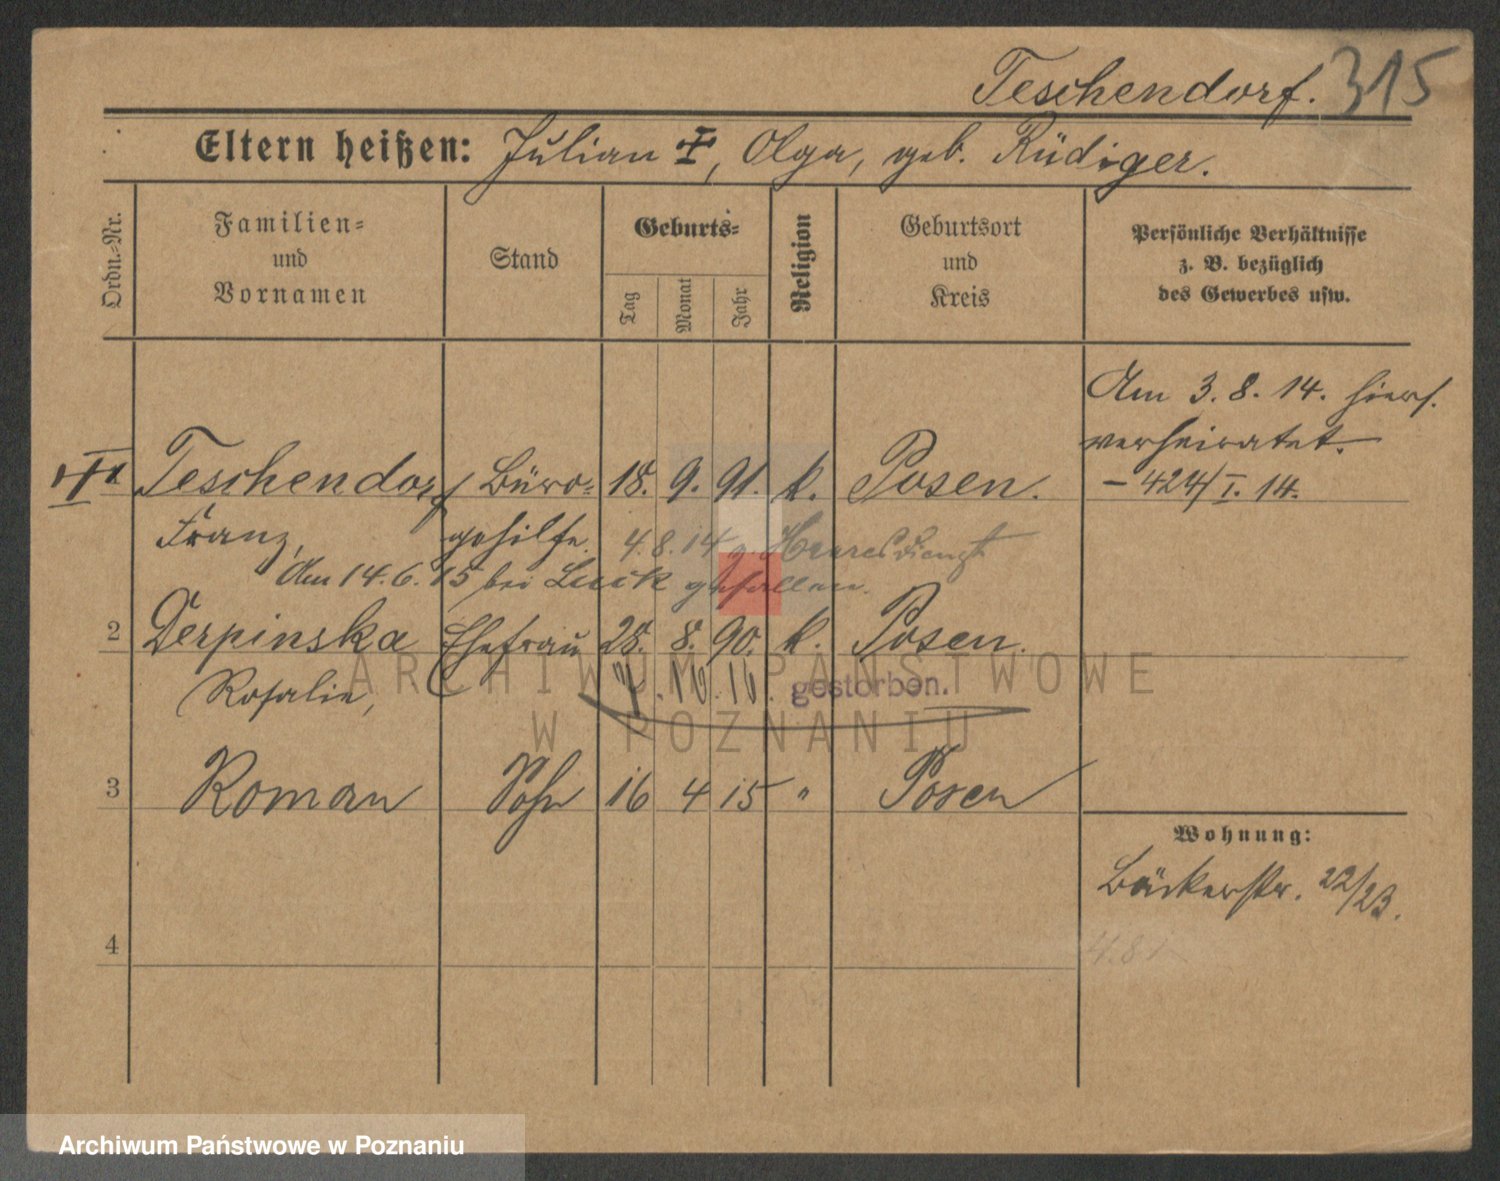 Teschendorf. 315
Eltern heißen: Julian, Olga, geb. Rüdiger.
Ordn.-Nr.
Familien=
und
Vornamen
Stand
Geburts=
Tag
Monat
Jahr
Religion
Geburtsort
und
Kreis
Persönliche Verhältnisse
z. B. bezüglich
des Gewerbes usw.
Am 3. 8. 14. hiers.
verheiratet.
– 424/I. 14.
Teschendorf Büro= 18. 9. 91. k. Posen.
Franz, gehilfe. 4.8.14 z. Heeresdienst
Am 14.6.15 bei Luck gefallen.
2 Derpinska Ehefrau 28. 8. 90. k. Posen.
Rosalie, 7.10.16. gestorben.
3 Roman Sohn 16 4 15 " Posen
Wohnung:
Bäckerstr. 22/23.
4
4.8.
ARCHIWUM PAŃSTWOWE
W POZNANIU
Archiwum Państwowe w Poznaniu